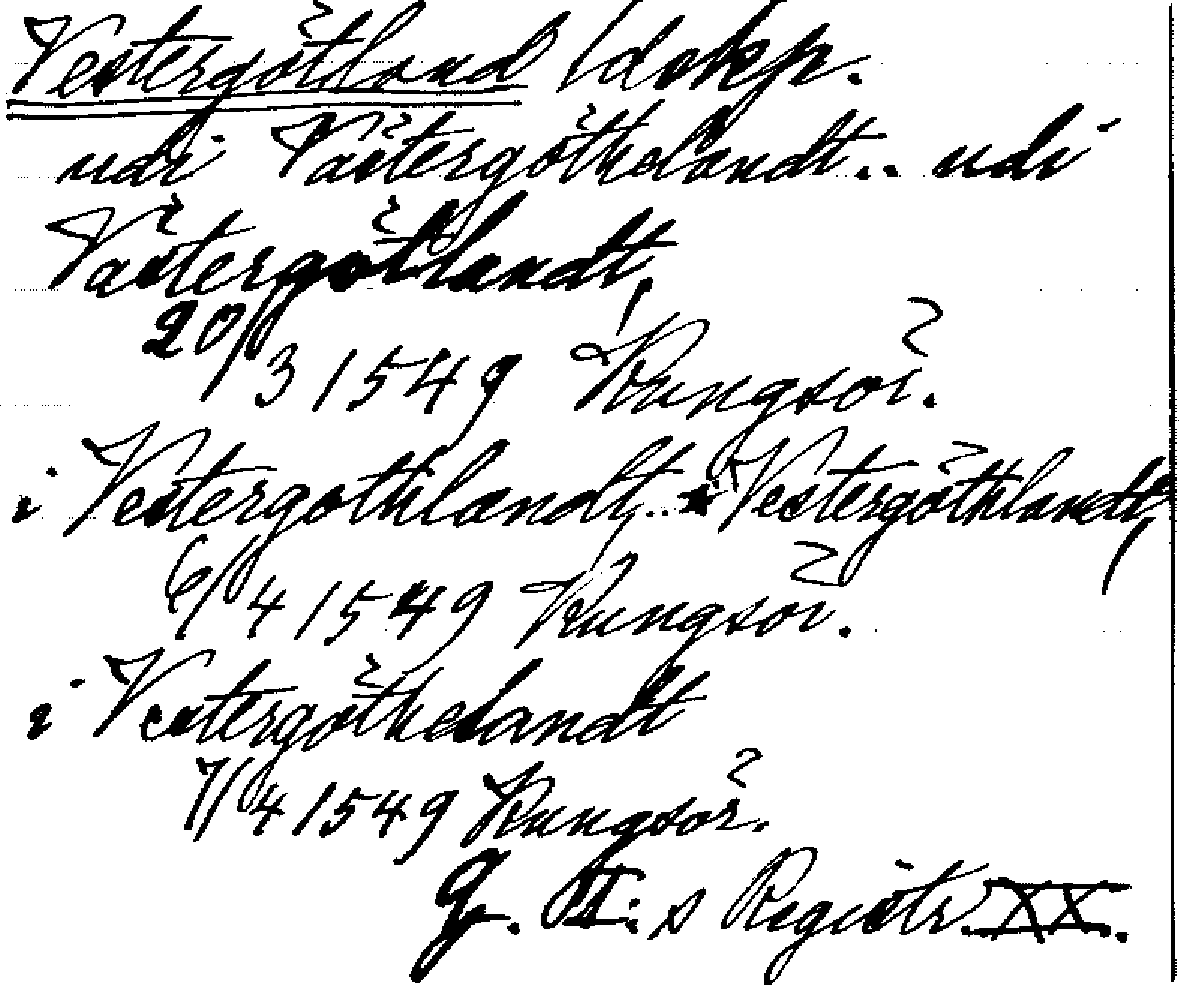 Vestergötland /dskp.
udi Västergöthelandt.. udi
Västergötlandt,
20/3 1549 Kungsör.
i Vestergothlandt.. i Vestergöthlandt,
6/4 1549 Kungsör.
i Vestergöthelandt
7/4 1549 Kungsör.
G. I:s Registr. XX.